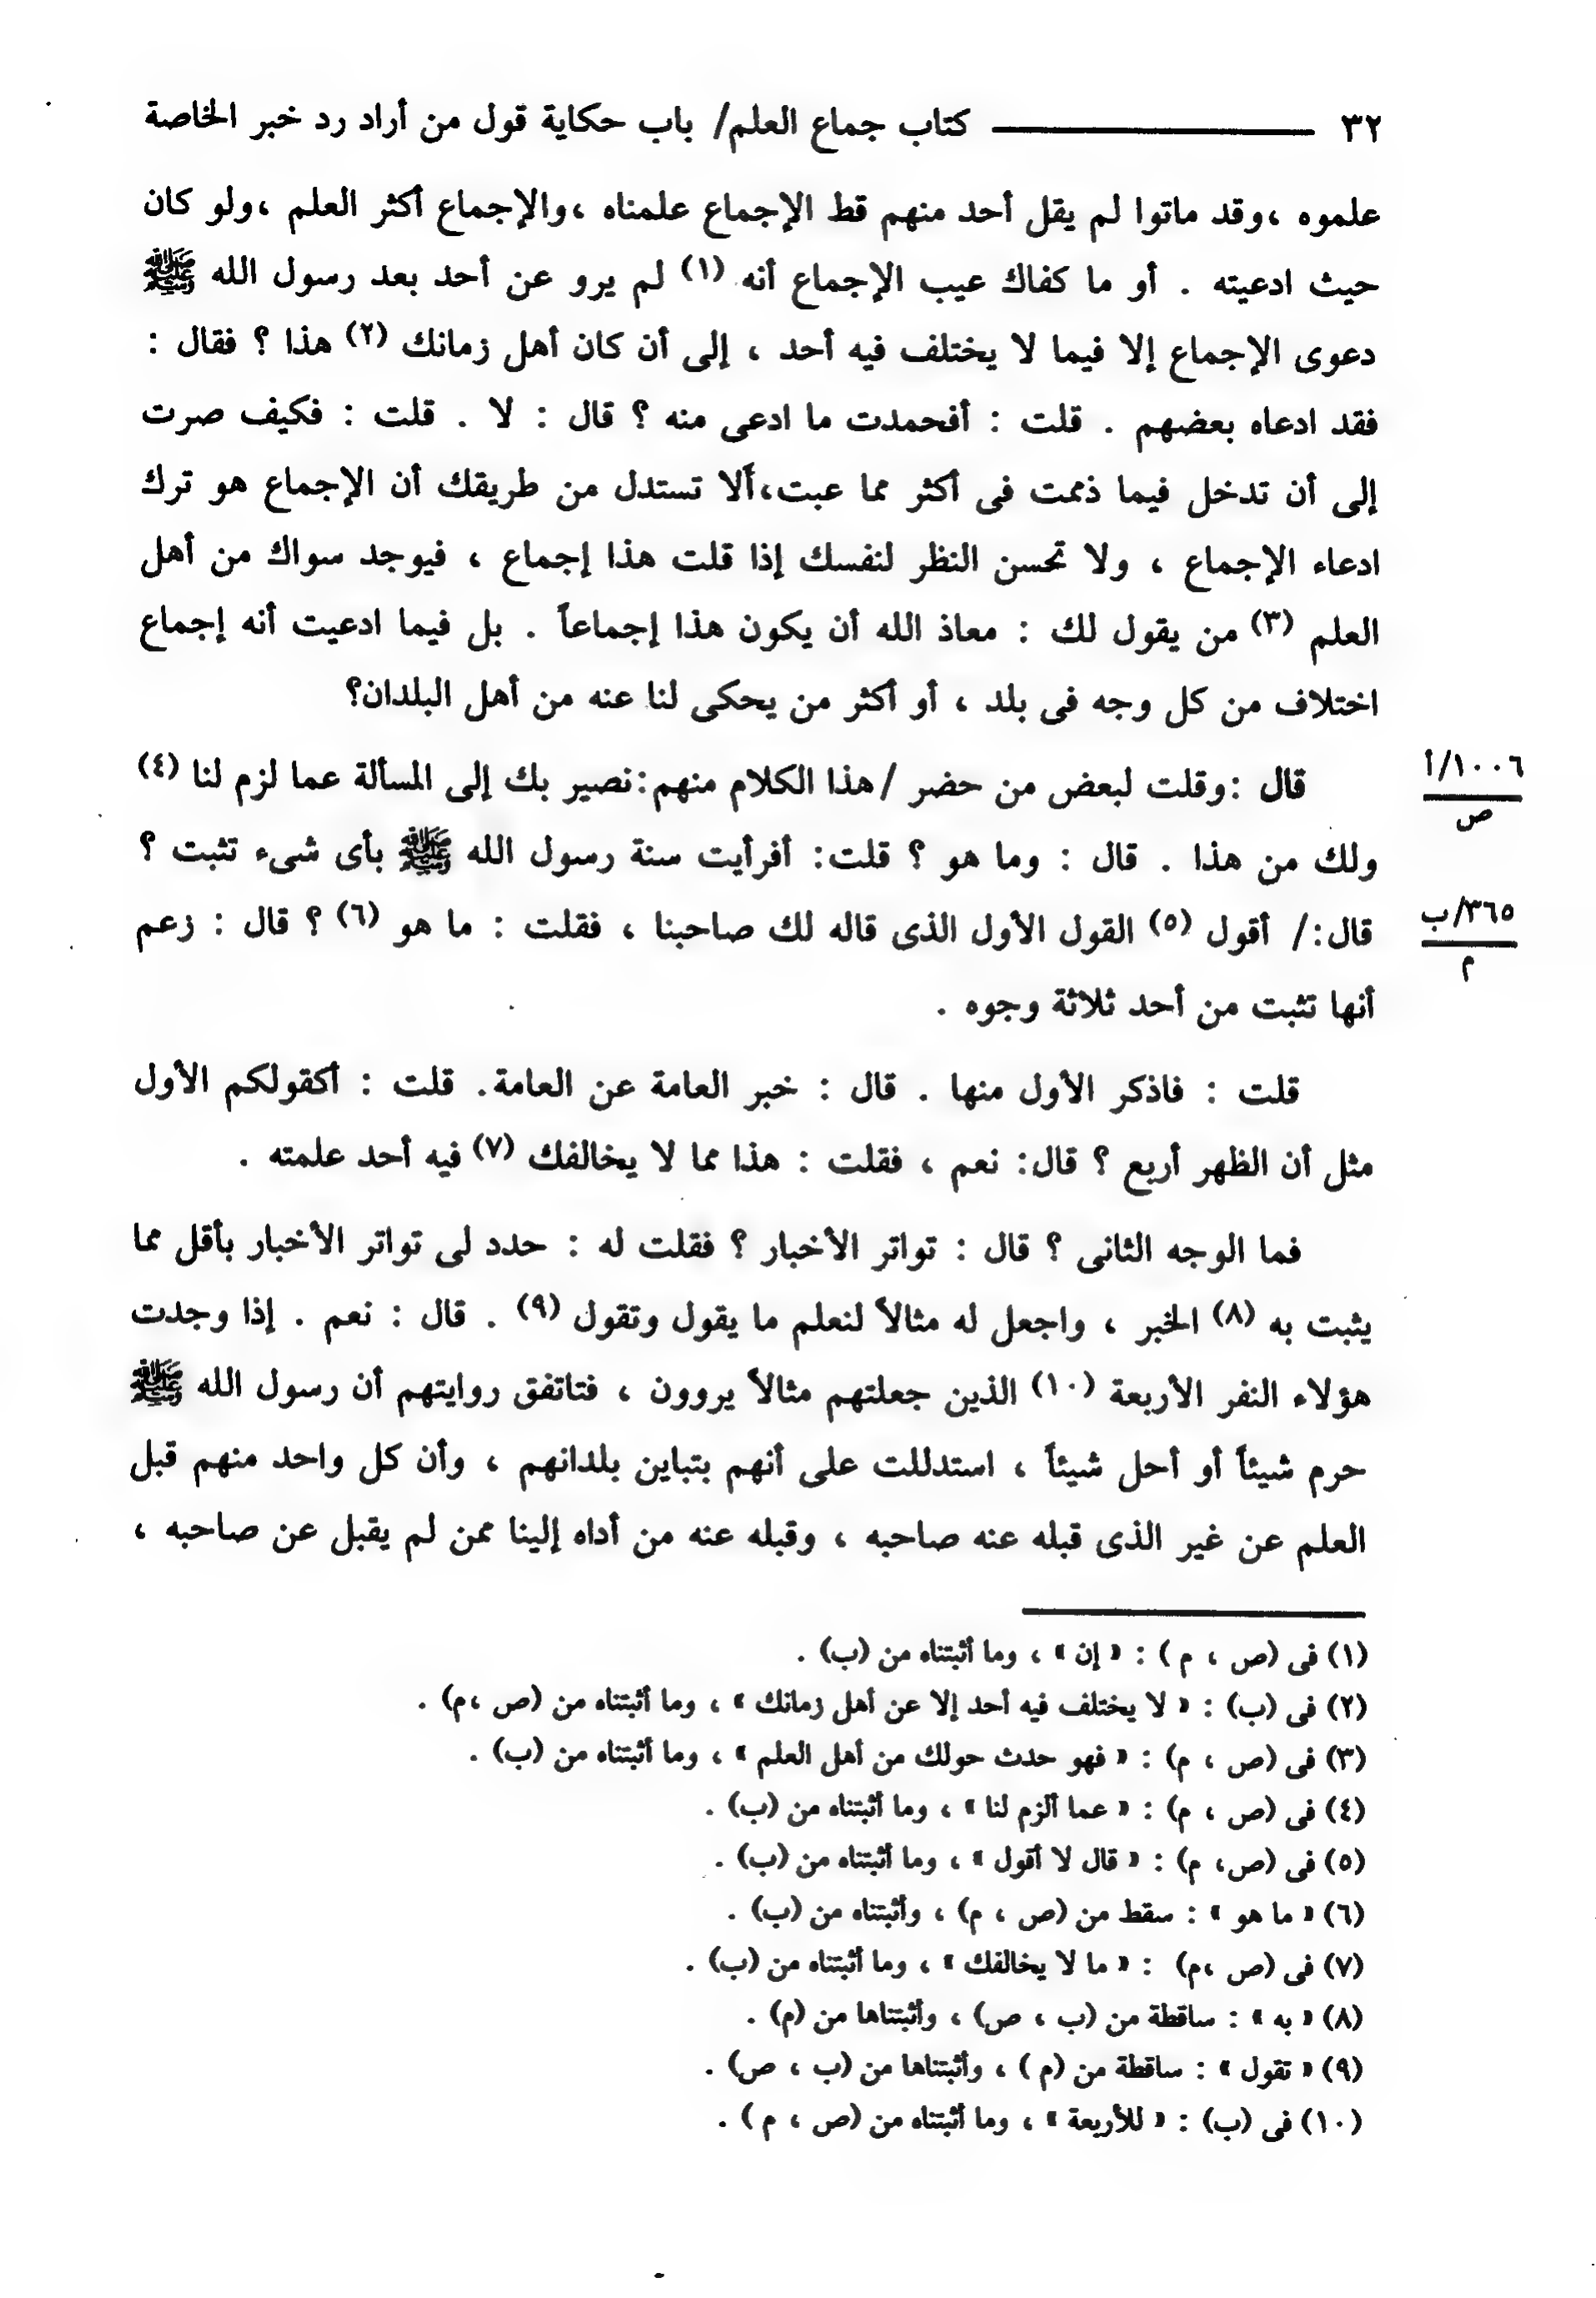 ٣٢ ــــــــــــــــ كتاب جماع العلم/ باب حكاية قول من أراد رد خبر الخاصة
علموه ،وقد ماتوا لم يقل أحد منهم قط الإجماع علمناه ،والإجماع أكثر العلم ،ولو كان
حيث ادعيته . أو ما كفاك عيب الإجماع أنه (١) لم يرو عن أحد بعد رسول الله ﷺ
دعوى الإجماع إلا فيما لا يختلف فيه أحد ، إلى أن كان أهل زمانك (٢) هذا ؟ فقال :
فقد ادعاه بعضهم . قلت : أفحمدت ما ادعى منه ؟ قال : لا . قلت : فكيف صرت
إلى أن تدخل فيما ذممت فى أكثر مما عبت،ألا تستدل من طريقك أن الإجماع هو ترك
ادعاء الإجماع ، ولا تحسن النظر لنفسك إذا قلت هذا إجماع ، فيوجد سواك من أهل
العلم (٣) من يقول لك : معاذ الله أن يكون هذا إجماعاً . بل فيما ادعيت أنه إجماع
اختلاف من كل وجه فى بلد ، أو أكثر من يحكى لنا عنه من أهل البلدان؟
قال :وقلت لبعض من حضر /هذا الكلام منهم:نصير بك إلى المسألة عما لزم لنا (٤)
١٠٠٦/أ
ص
ولك من هذا . قال : وما هو ؟ قلت: أفرأيت سنة رسول الله ﷺ بأى شىء تثبت ؟
قال:/ أقول (٥) القول الأول الذى قاله لك صاحبنا ، فقلت : ما هو (٦) ؟ قال : زعم
٣٦٥/ب
م
أنها تثبت من أحد ثلاثة وجوه .
قلت : فاذكر الأول منها . قال : خبر العامة عن العامة. قلت : أكقولكم الأول
مثل أن الظهر أربع ؟ قال: نعم ، فقلت : هذا مما لا يخالفك (٧) فيه أحد علمته .
فما الوجه الثانى ؟ قال : تواتر الأخبار ؟ فقلت له : حدد لى تواتر الأخبار بأقل مما
يثبت به (٨) الخبر ، واجعل له مثالاً لنعلم ما يقول وتقول (٩) . قال : نعم . إذا وجدت
هؤلاء النفر الأربعة (١٠) الذين جعلتهم مثالاً يروون ، فتاتفق روايتهم أن رسول الله ﷺ
حرم شيئاً أو أحل شيئاً ، استدللت على أنهم بتباين بلدانهم ، وأن كل واحد منهم قبل
العلم عن غير الذى قبله عنه صاحبه ، وقبله عنه من أداه إلينا ممن لم يقبل عن صاحبه ،
(١) فى (ص ، م ) : « إن » ، وما أثبتناه من (ب) .
(٢) فى (ب) : « لا يختلف فيه أحد إلا عن أهل زمانك » ، وما أثبتناه من (ص ،م) .
(٣) فى (ص ، م) : « فهو حدث حولك من أهل العلم » ، وما أثبتناه من (ب) .
(٤) فى (ص ، م) : « عما ألزم لنا » ، وما أثبتناه من (ب) .
(٥) فى (ص، م) : « قال لا أقول » ، وما أثبتناه من (ب) .
(٦) « ما هو » : سقط من (ص ، م) ، وأثبتناه من (ب) .
(٧) فى (ص ،م) : « ما لا يخالفك » ، وما أثبتناه من (ب) .
(٨) « به » : ساقطة من (ب ، ص) ، وأثبتناها من (م) .
(٩) « تقول » : ساقطة من (م ) ، وأثبتناها من (ب ، ص) .
(١٠) فى (ب) : « للأربعة » ، وما أثبتناه من (ص ، م ) .